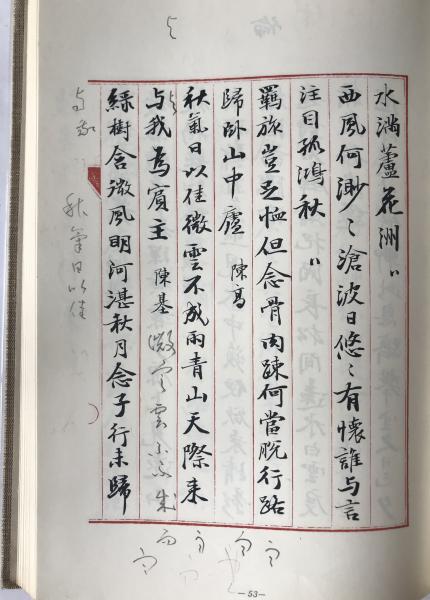 水滿蘆花洲〃
西風何渺〻滄波日悠〻有懷誰与言
注目孤鴻秋〃
羈旅豈足恤但念骨肉疎何當脫行路
歸卧山中廬 陳高
秋氣日以佳微雲不成雨青山天際来
与我為賓主 陳基
緑樹含微風明河湛秋月念子行未歸
与我
秋氣日以佳
—53—